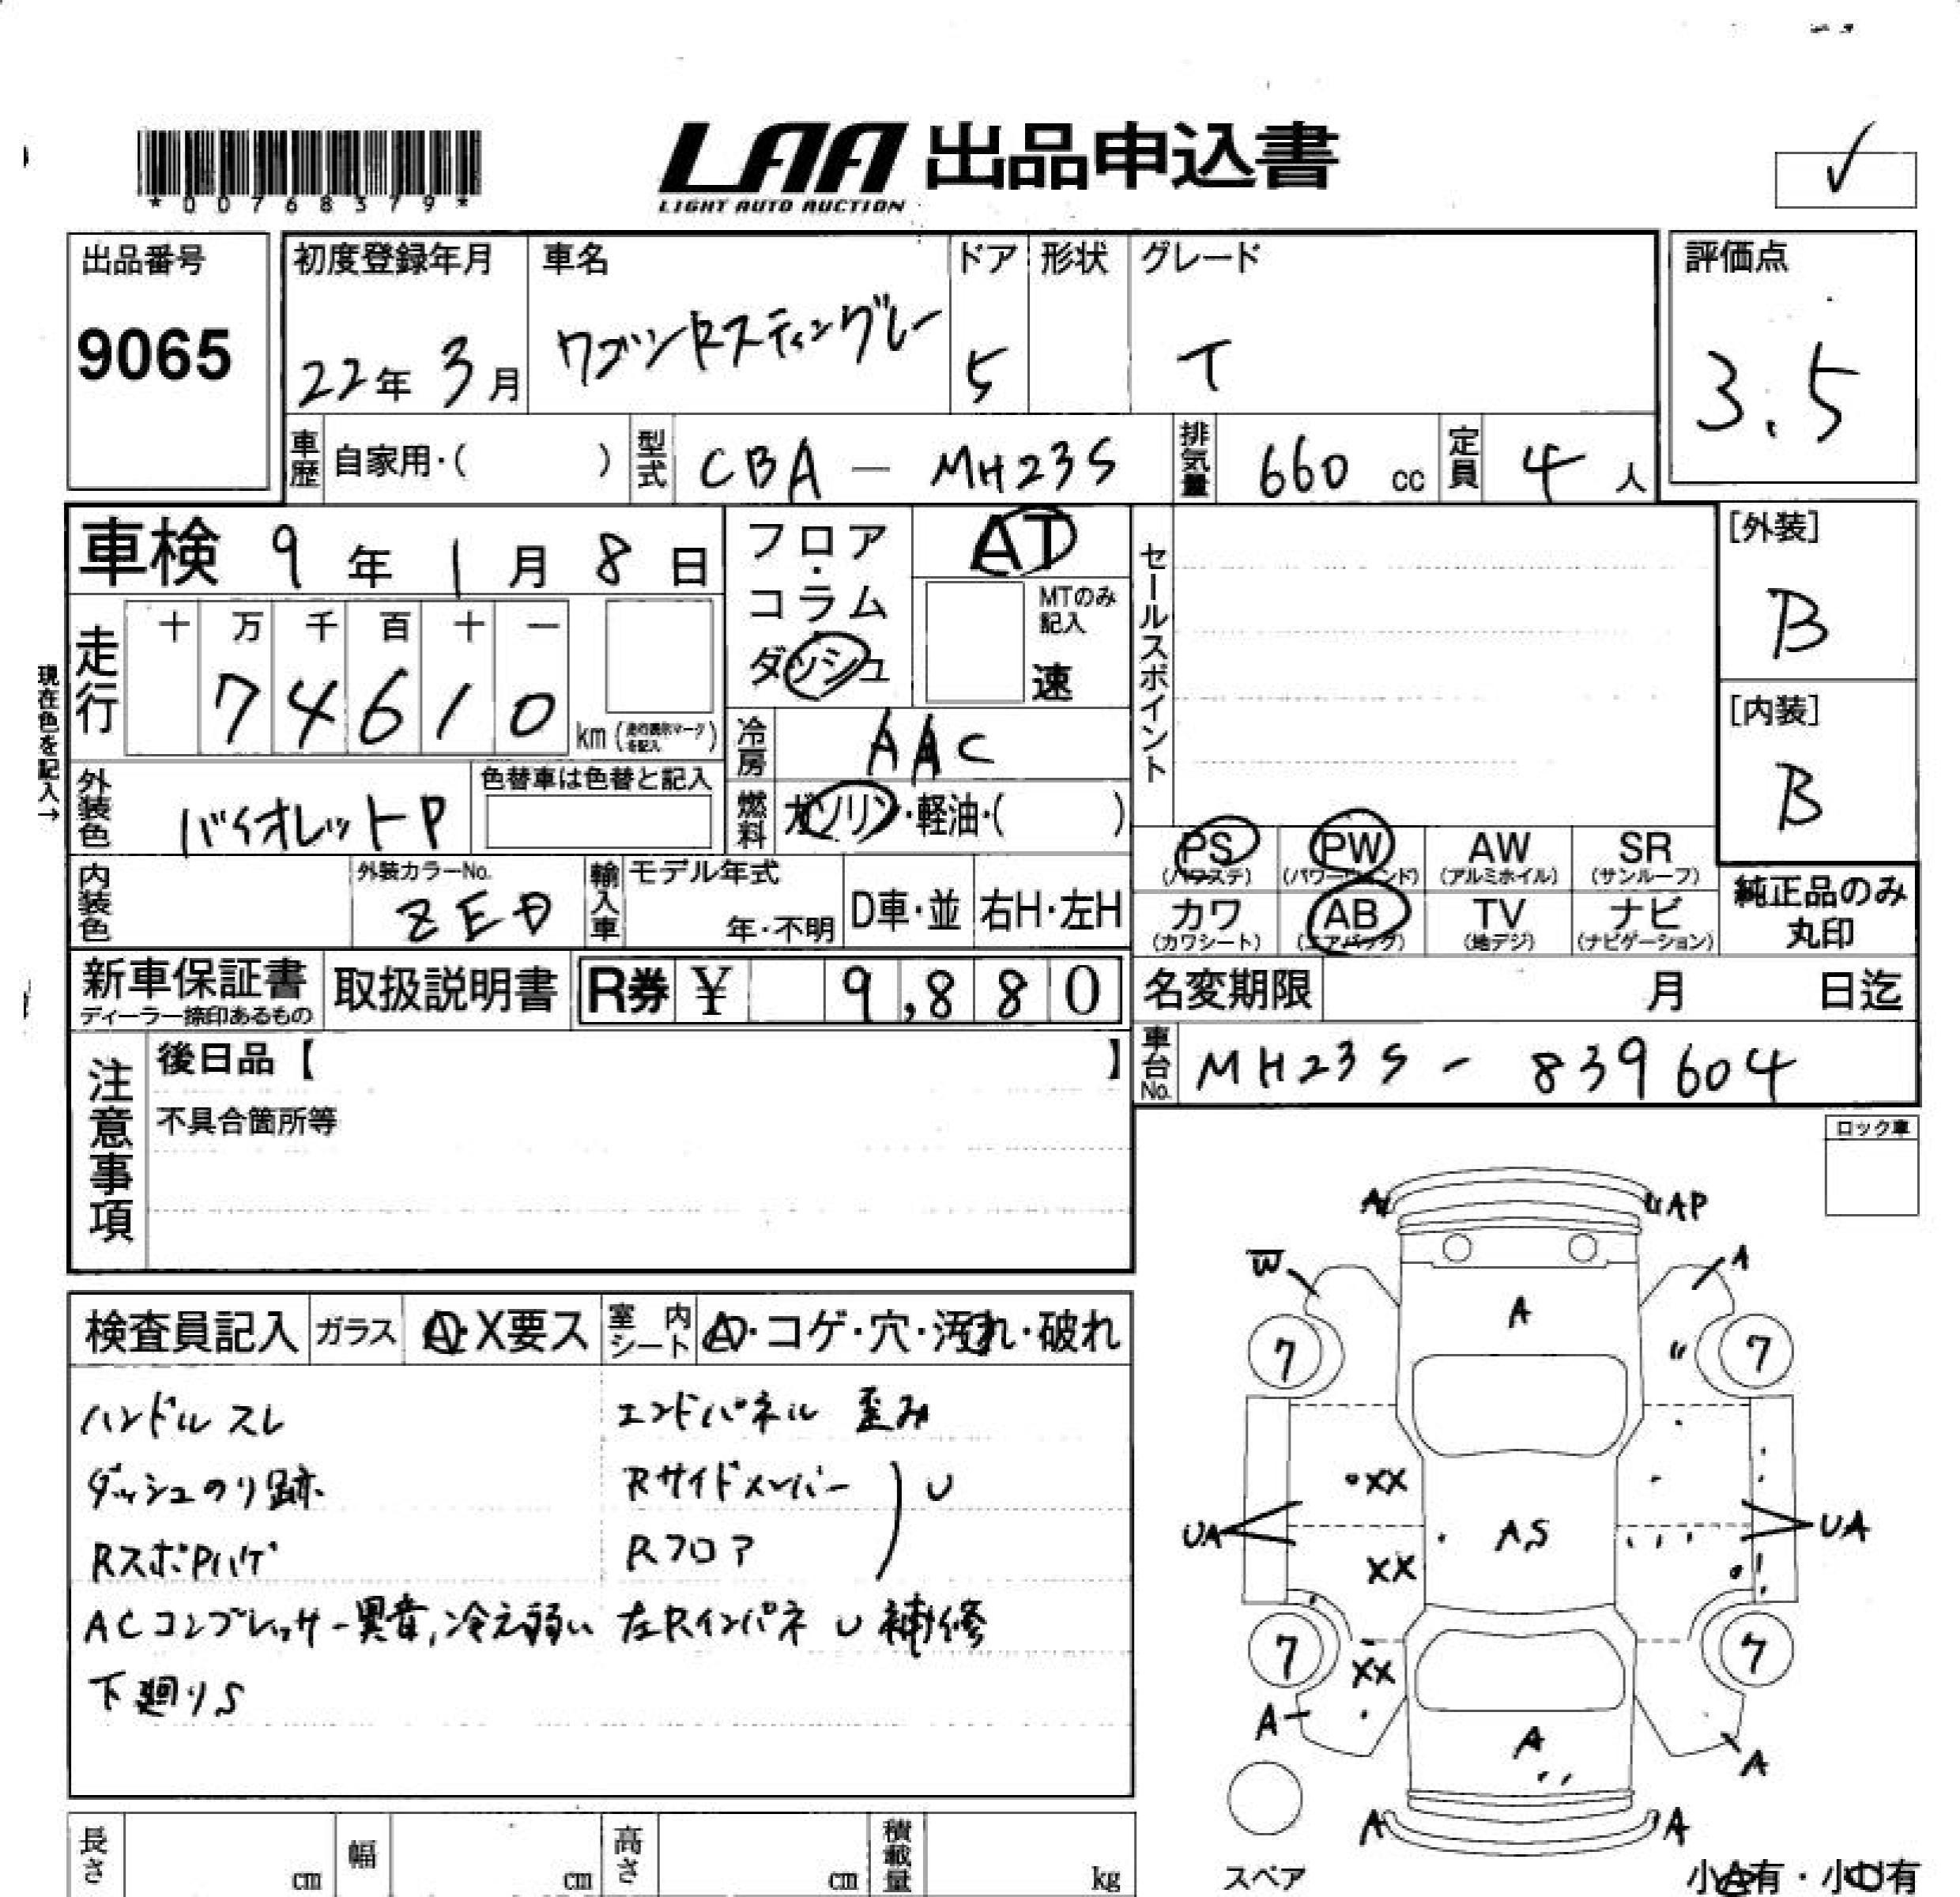 *00768379*
LAA 出品申込書
LIGHT AUTO AUCTION
✓
出品番号
9065
初度登録年月
22年 3月
車名
ワゴンRスティングレー
ドア
5
形状
グレード
T
評価点
3.5
車歴
自家用・( )
型式
CBA - MH23S
排気量
660 cc
定員
4 人
車検 9年 1月 8日
フロア・コラム・ダッシュ
AT
MTのみ記入
速
セールスポイント
[外装]
B
[内装]
B
現在色を記入→
走行
十 万 千 百 十 一
7 4 6 1 0
km
冷房
AAC
外装色
バイオレットP
色替車は色替と記入
燃料
ガソリン・軽油・( )
PS
(パワステ)
PW
(パワーウインド)
AW
(アルミホイル)
SR
(サンルーフ)
内装色
外装カラーNo.
ZED
輸入車
モデル年式
年・不明
D車・並
右H・左H
カワ
(カワシート)
AB
(エアバッグ)
TV
(地デジ)
ナビ
(ナビゲーション)
純正品のみ
丸印
新車保証書
ディーラー捺印あるもの
取扱説明書
R券 ¥ 9,880
名変期限
月 日迄
注意事項
後日品【 】
不具合箇所等
車台No.
MH23S - 839604
ロック車
検査員記入
ガラス
A・X要ス
室内シート
A・コゲ・穴・汚れ・破れ
ハンドルスレ
エンドパネル 歪み
ダッシュのり跡
Rサイドメンバー
U
RスポPハゲ
Rフロア
ACコンプレッサー異音,冷え弱い
左Rインパネ U 補修
下廻りS
A
AP
W
A
A
7
7
XX
UA
AS
UA
XX
7
7
XX
A
A
A
A
A
スペア
小A有・小U有
長さ
cm
幅
cm
高さ
cm
積載量
kg